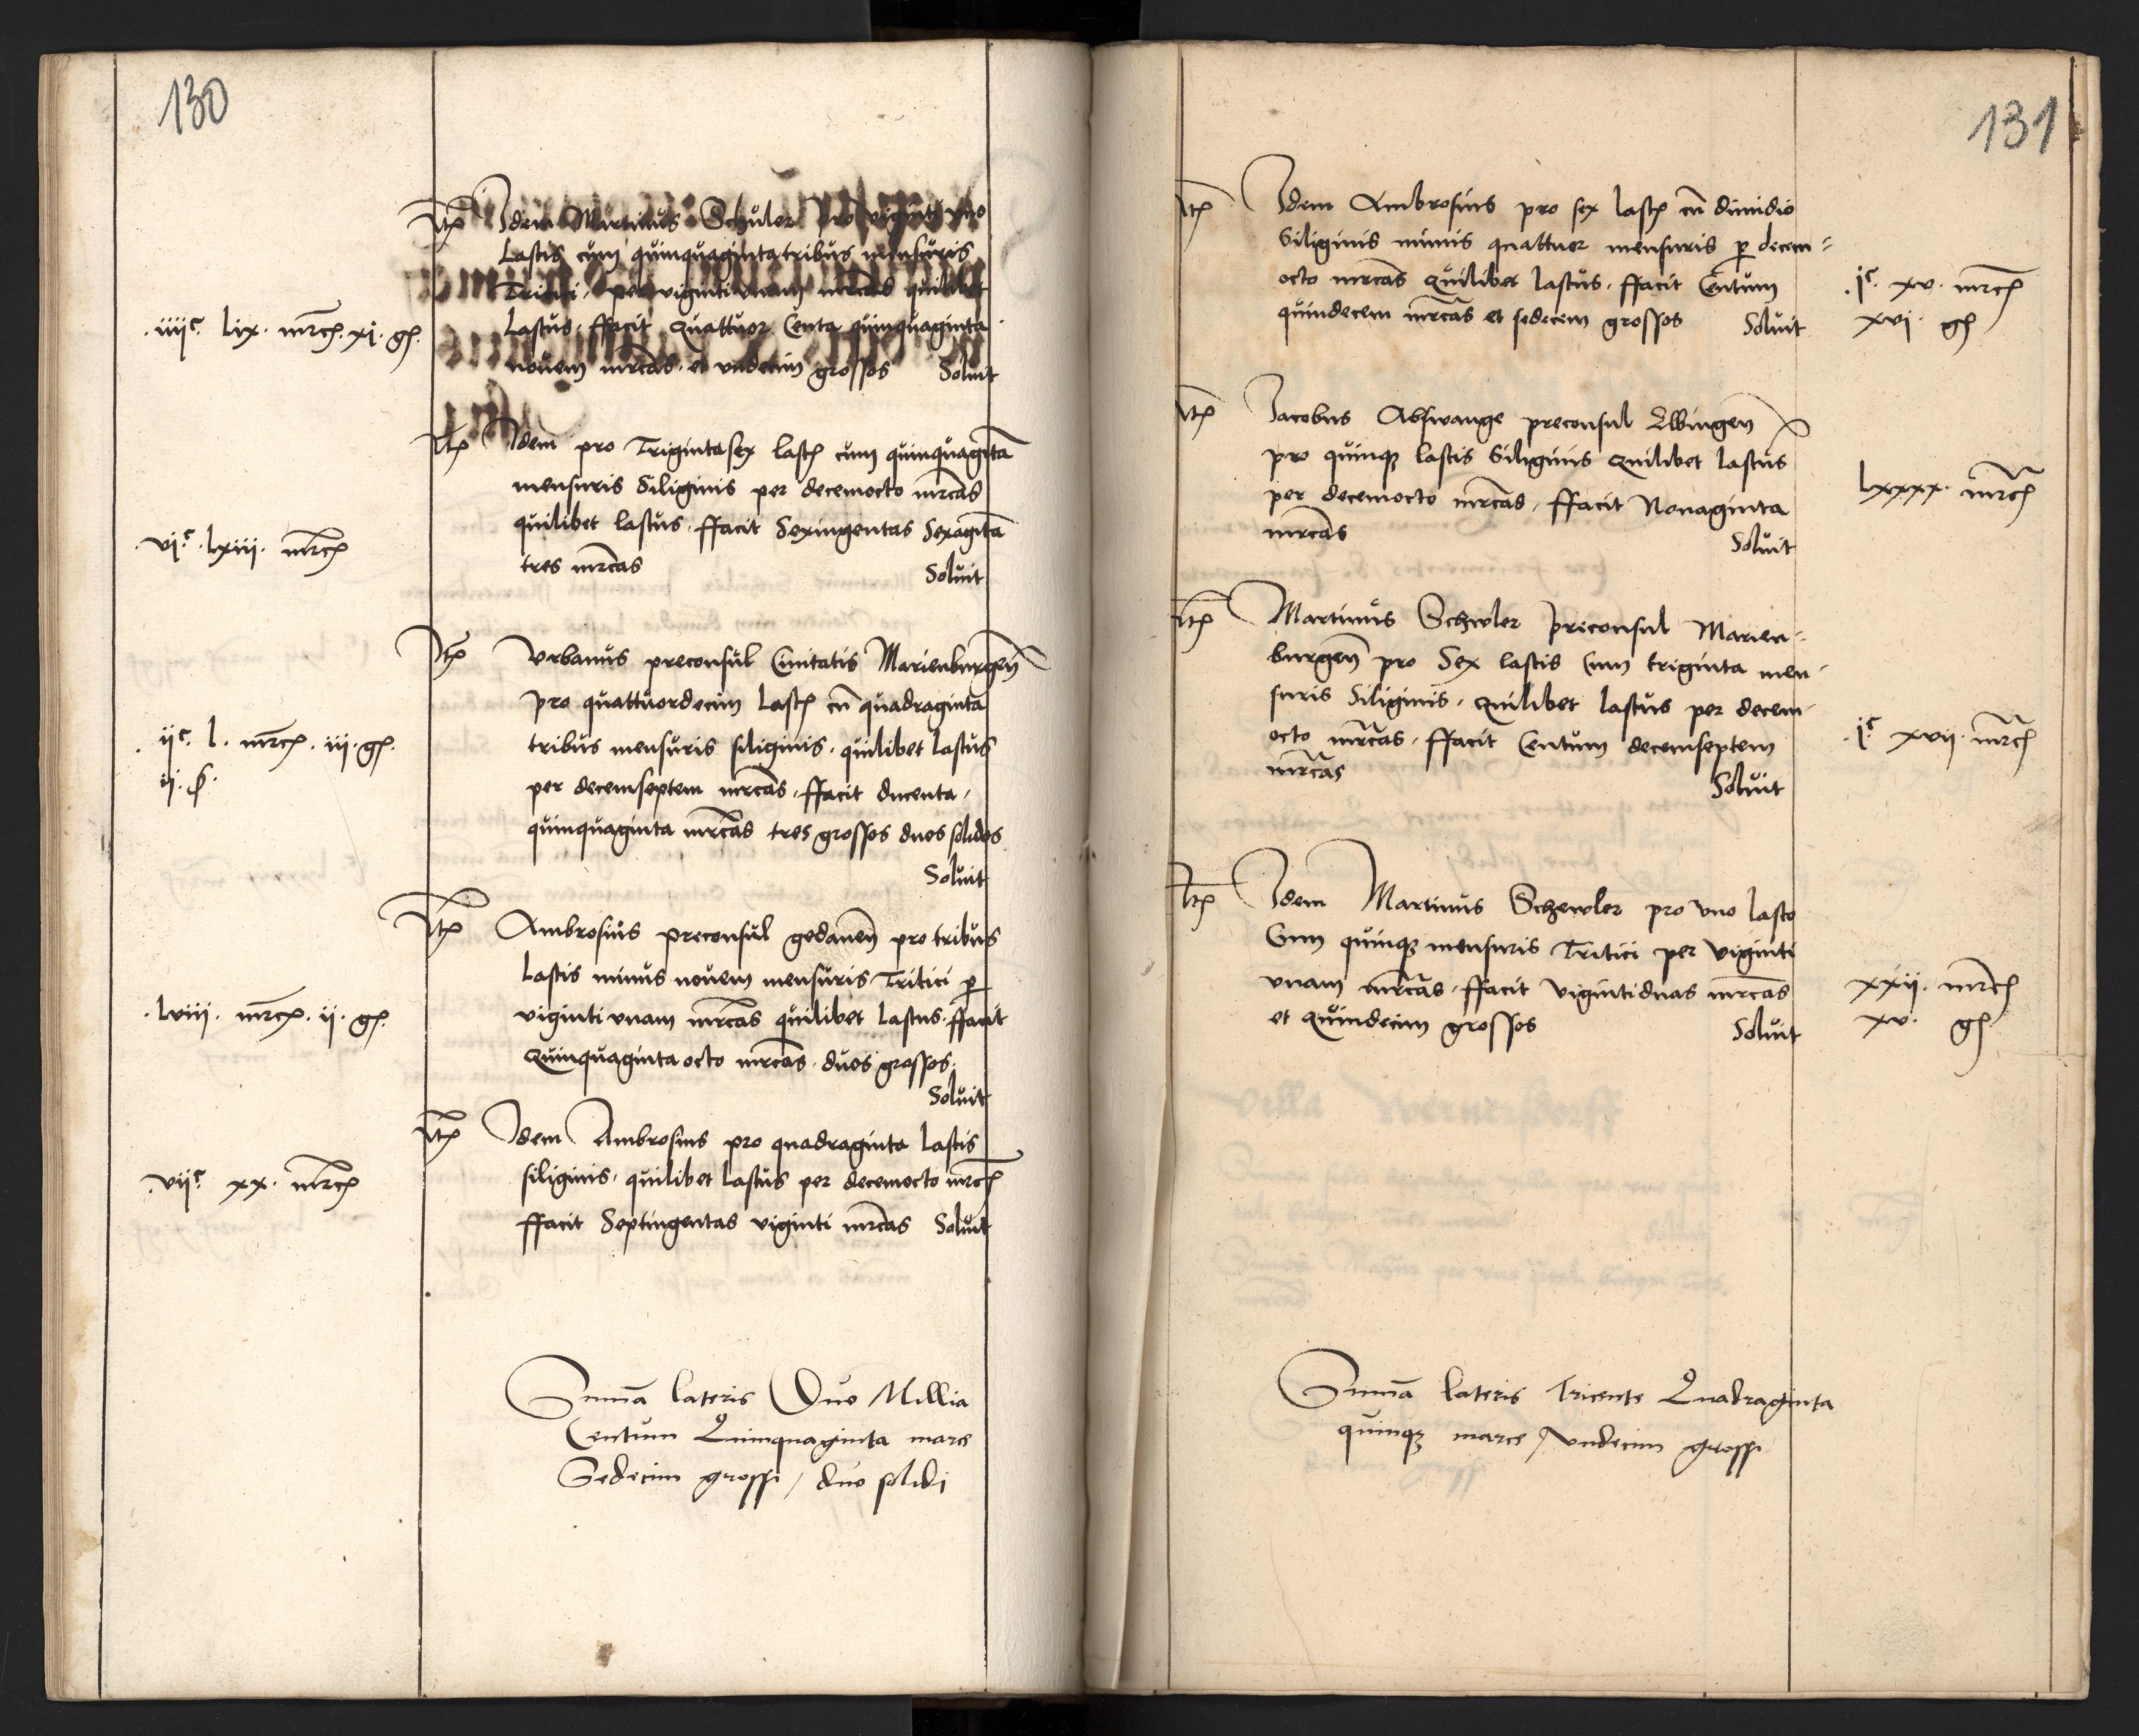 130
Itm Idem Martinus Schuler pro viginti vno
Lastis cum quinquagintatribus mensuris
Tritici, per vigintivnam mrcas quilibet
.iiijc. Lix. mrcs. xi. gs.
Lastus. ffacit Quattuor Centa quinquaginta
nouem mrcas. et vndecim grossos Soluit
Itm Idem pro Trigintasex lasts cum quinquaginta
mensuris Siliginis per decemocto mrcas
.vjc. lxiii. mrcs
quilibet lastus. ffacit Sexingentas Sexaginta
tres mrcas Soluit
Itm Vrbanus preconsul Ciuitatis Marienburgen
pro quattuordecim Lasts cu quadraginta
.ijc. l. mrcs. iij. gs.
tribus mensuris siliginis. quilibet Lastus
ij. s.
per decemseptem mrcas. ffacit ducenta,
quinquaginta mrcas tres grossos duos solidos
Soluit
Itm Ambrosius preconsul gedanen pro tribus
Lastis minus nouem mensuris Tritici p
.lviii. mrcs. ii. gs.
viginti vnam mrcas quilibet Lastus. ffacit
Quinquaginta octo mrcas. duos grossos.
Soluit
Itm Idem Ambrosius pro quadraginta Lastis
.vijc. xx. mrcs
siliginis. quilibet Lastus per decemocto mrcs
ffacit Septingentas viginti mrcas Soluit
Suma lateris Duo Millia
Centum Quinquaginta marce
Sedecim grossi / duo solidi
131
Itm Idem Ambrosius pro sex lasts cu dimidio
Siliginis minus quattuor mensuris p decem=
octo mrcas Quilibet lastus. ffacit Centum
.jc. xv. mrcs
quindecem mrcas et sedecem grossos Soluit
xvi. gs
Itm Jacobus Abswange preconsul Elbingen
pro quinq lastis Siliginis Quilibet lastus
per decemocto mrcas. ffacit Nonaginta
Lxxxx. mrcs
mrcas Soluit
Itm Martinus Schwler preconsul Marien-
burgen pro Sex lastis Cum triginta men-
suris Siliginis. Quilibet lastus per decem-
octo mrcas. ffacit Centum decemseptem
.jc. xvij. mrcs
mrcas Soluit
Itm Idem Martinus Schewler pro vno lasto
Cum quinq mensuris Tritici per viginti
vnam mrcas. ffacit vigintiduas mrcas
xxij. mrcs
et Quindecim grossos Soluit
xv. gs
Suma lateris Tricente Quadraginta
quinq marce / vndecim grossi